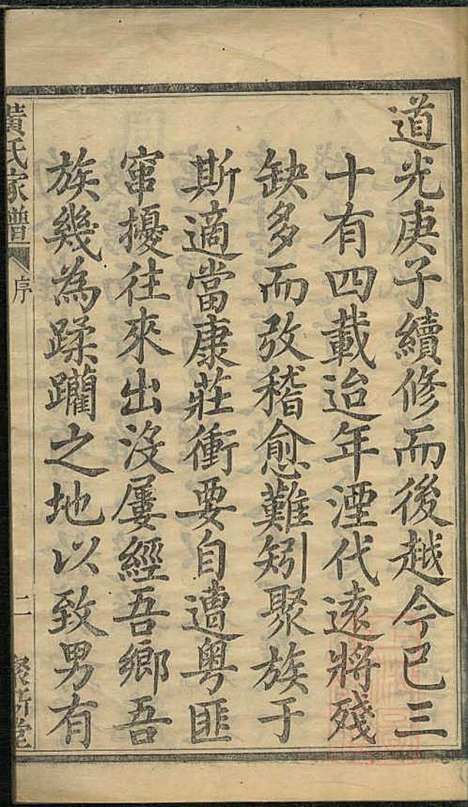 道光庚子續修而後越今已三
十有四載迨年湮代遠將殘
缺多而攷稽愈難矧聚族于
斯適當康莊衝要自遭粵匪
竄擾往來出沒屢經吾鄉吾
族幾為蹂躪之地以致男有
黃氏家譜
序
二
聚斯堂